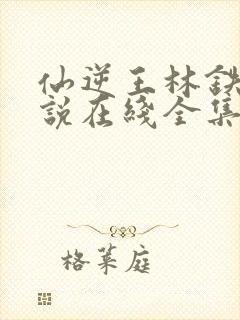 仙逆王林铁
説在綫全集
格菜庭